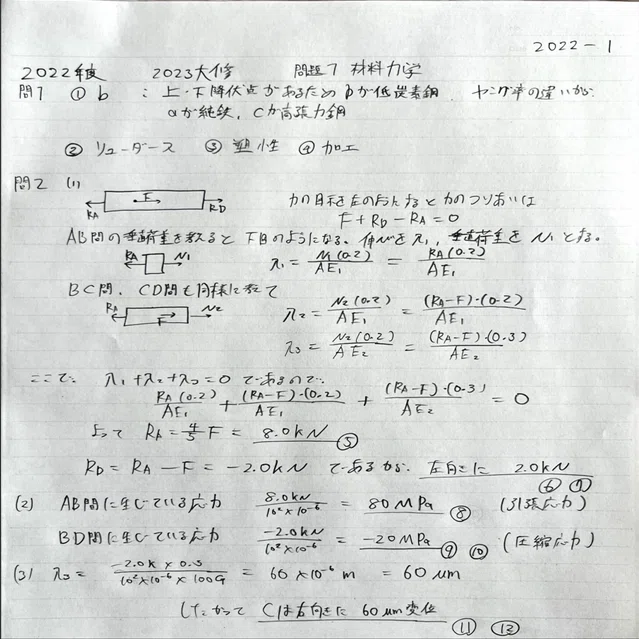 2022-1
2022年度 2023大修 問題7 材料力学
問1 ① b : 上・下降伏点があるため bが低炭素鋼 ヤング率の違いから
aが純鉄, Cが高張力鋼
② リューダース ③ 塑性 ④ 加工
問2 (1)
RA F RD
力の向きを左のようにすると力のつりあいは
F+RD-RA=0
AB間の垂直荷重を考えると下図のようになる。伸びをλ1, 垂直荷重をN1とする。
RA N1 λ1 = N1(0.2)/AE1 = RA(0.2)/AE1
BC間, CD間も同様に考えて
RA F N2 λ2 = N2(0.2)/AE1 = (RA-F)・(0.2)/AE1
λ3 = N2(0.2)/AE2 = (RA-F)・(0.3)/AE2
ここで, λ1+λ2+λ3=0 であるので,
RA(0.2)/AE1 + (RA-F)・(0.2)/AE1 + (RA-F)・(0.3)/AE2 = 0
よって RA = 4/5 F = 8.0kN ⑤
RD = RA - F = -2.0kN であるから 左向きに 2.0kN
⑥ ⑦
(2) AB間に生じている応力 8.0kN/10²×10⁻⁶ = 80MPa ⑧ (引張応力)
BD間に生じている応力 -2.0kN/10²×10⁻⁶ = -20MPa ⑨ ⑩ (圧縮応力)
(3) λ3 = -2.0k×0.3/10²×10⁻⁶×100G = 60×10⁻⁶ m = 60μm
したがって Cは右向きに 60μm変位
⑪ ⑫